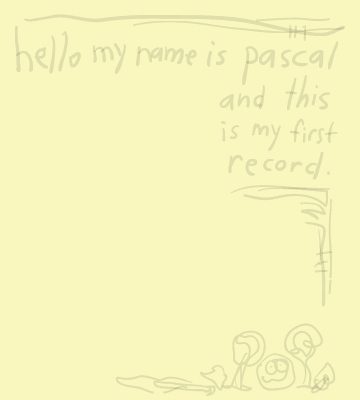 hello my name is pascal
and this
is my first
record.